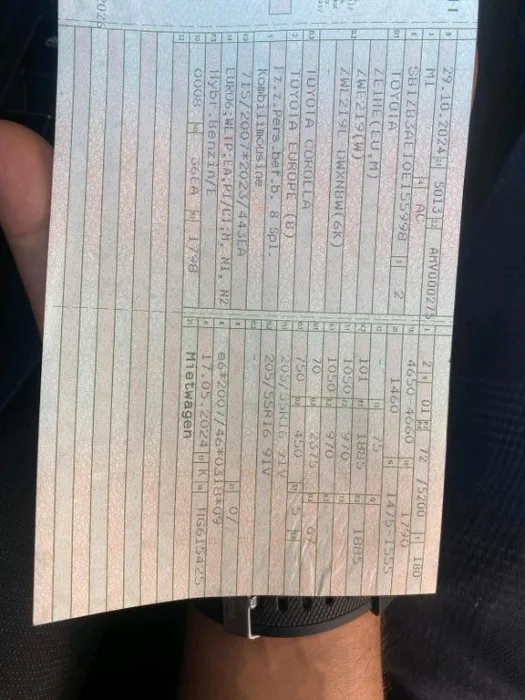 29.10.2024 5013 AMV000275
M1 AC
SB1Z83AE10E155998 2
TOYOTA
ZE1HE(EU,M)
ZWE219(W)
ZWE219L-DWXNBW(6K)
TOYOTA COROLLA
TOYOTA EUROPE (B)
Fz.z.Pers.bef.b. 8 Spl.
Kombilimousine
715/2007*2023/443EA
EURO6;WLTP;EA;PI/CI;M, N1, N2
Hybr.Benzin/E
0008 36EA 1798
2 01 72 /5200 180
4650-4660 1790
1460 1475-1555
- 75
101 1885 1885
1050 970
1050 970
70 2675 67
750 450 5
205/55R16 91V
205/55R16 91V
-
0/
e6*2007/46*0318*09
17.05.2024 K HG615425
Mietwagen